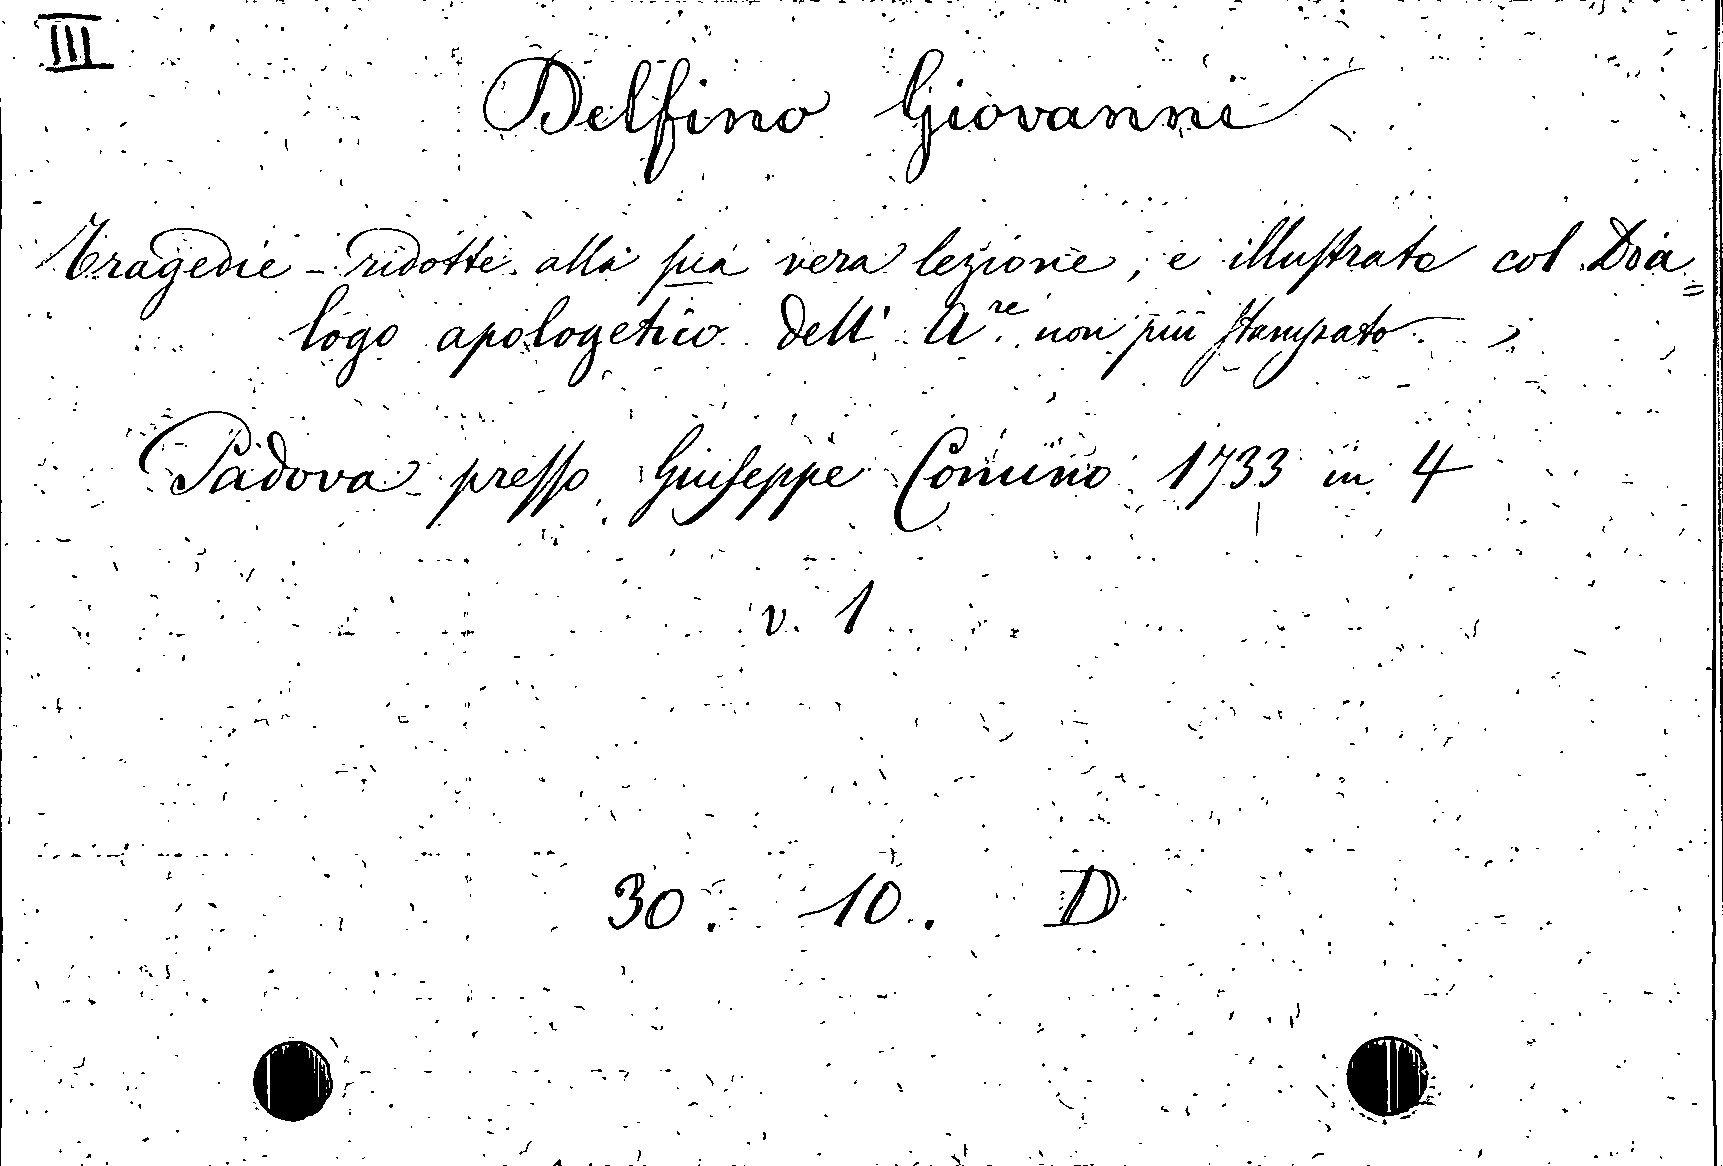 III
Delfino Giovanni
Tragedie - ridotte alla sua vera lezione, e illustrate col Dia=
logo apologetico dell' A.re non più stampato
Padova presso Giuseppe Comino 1733 in 4
v. 1
30. 10. D